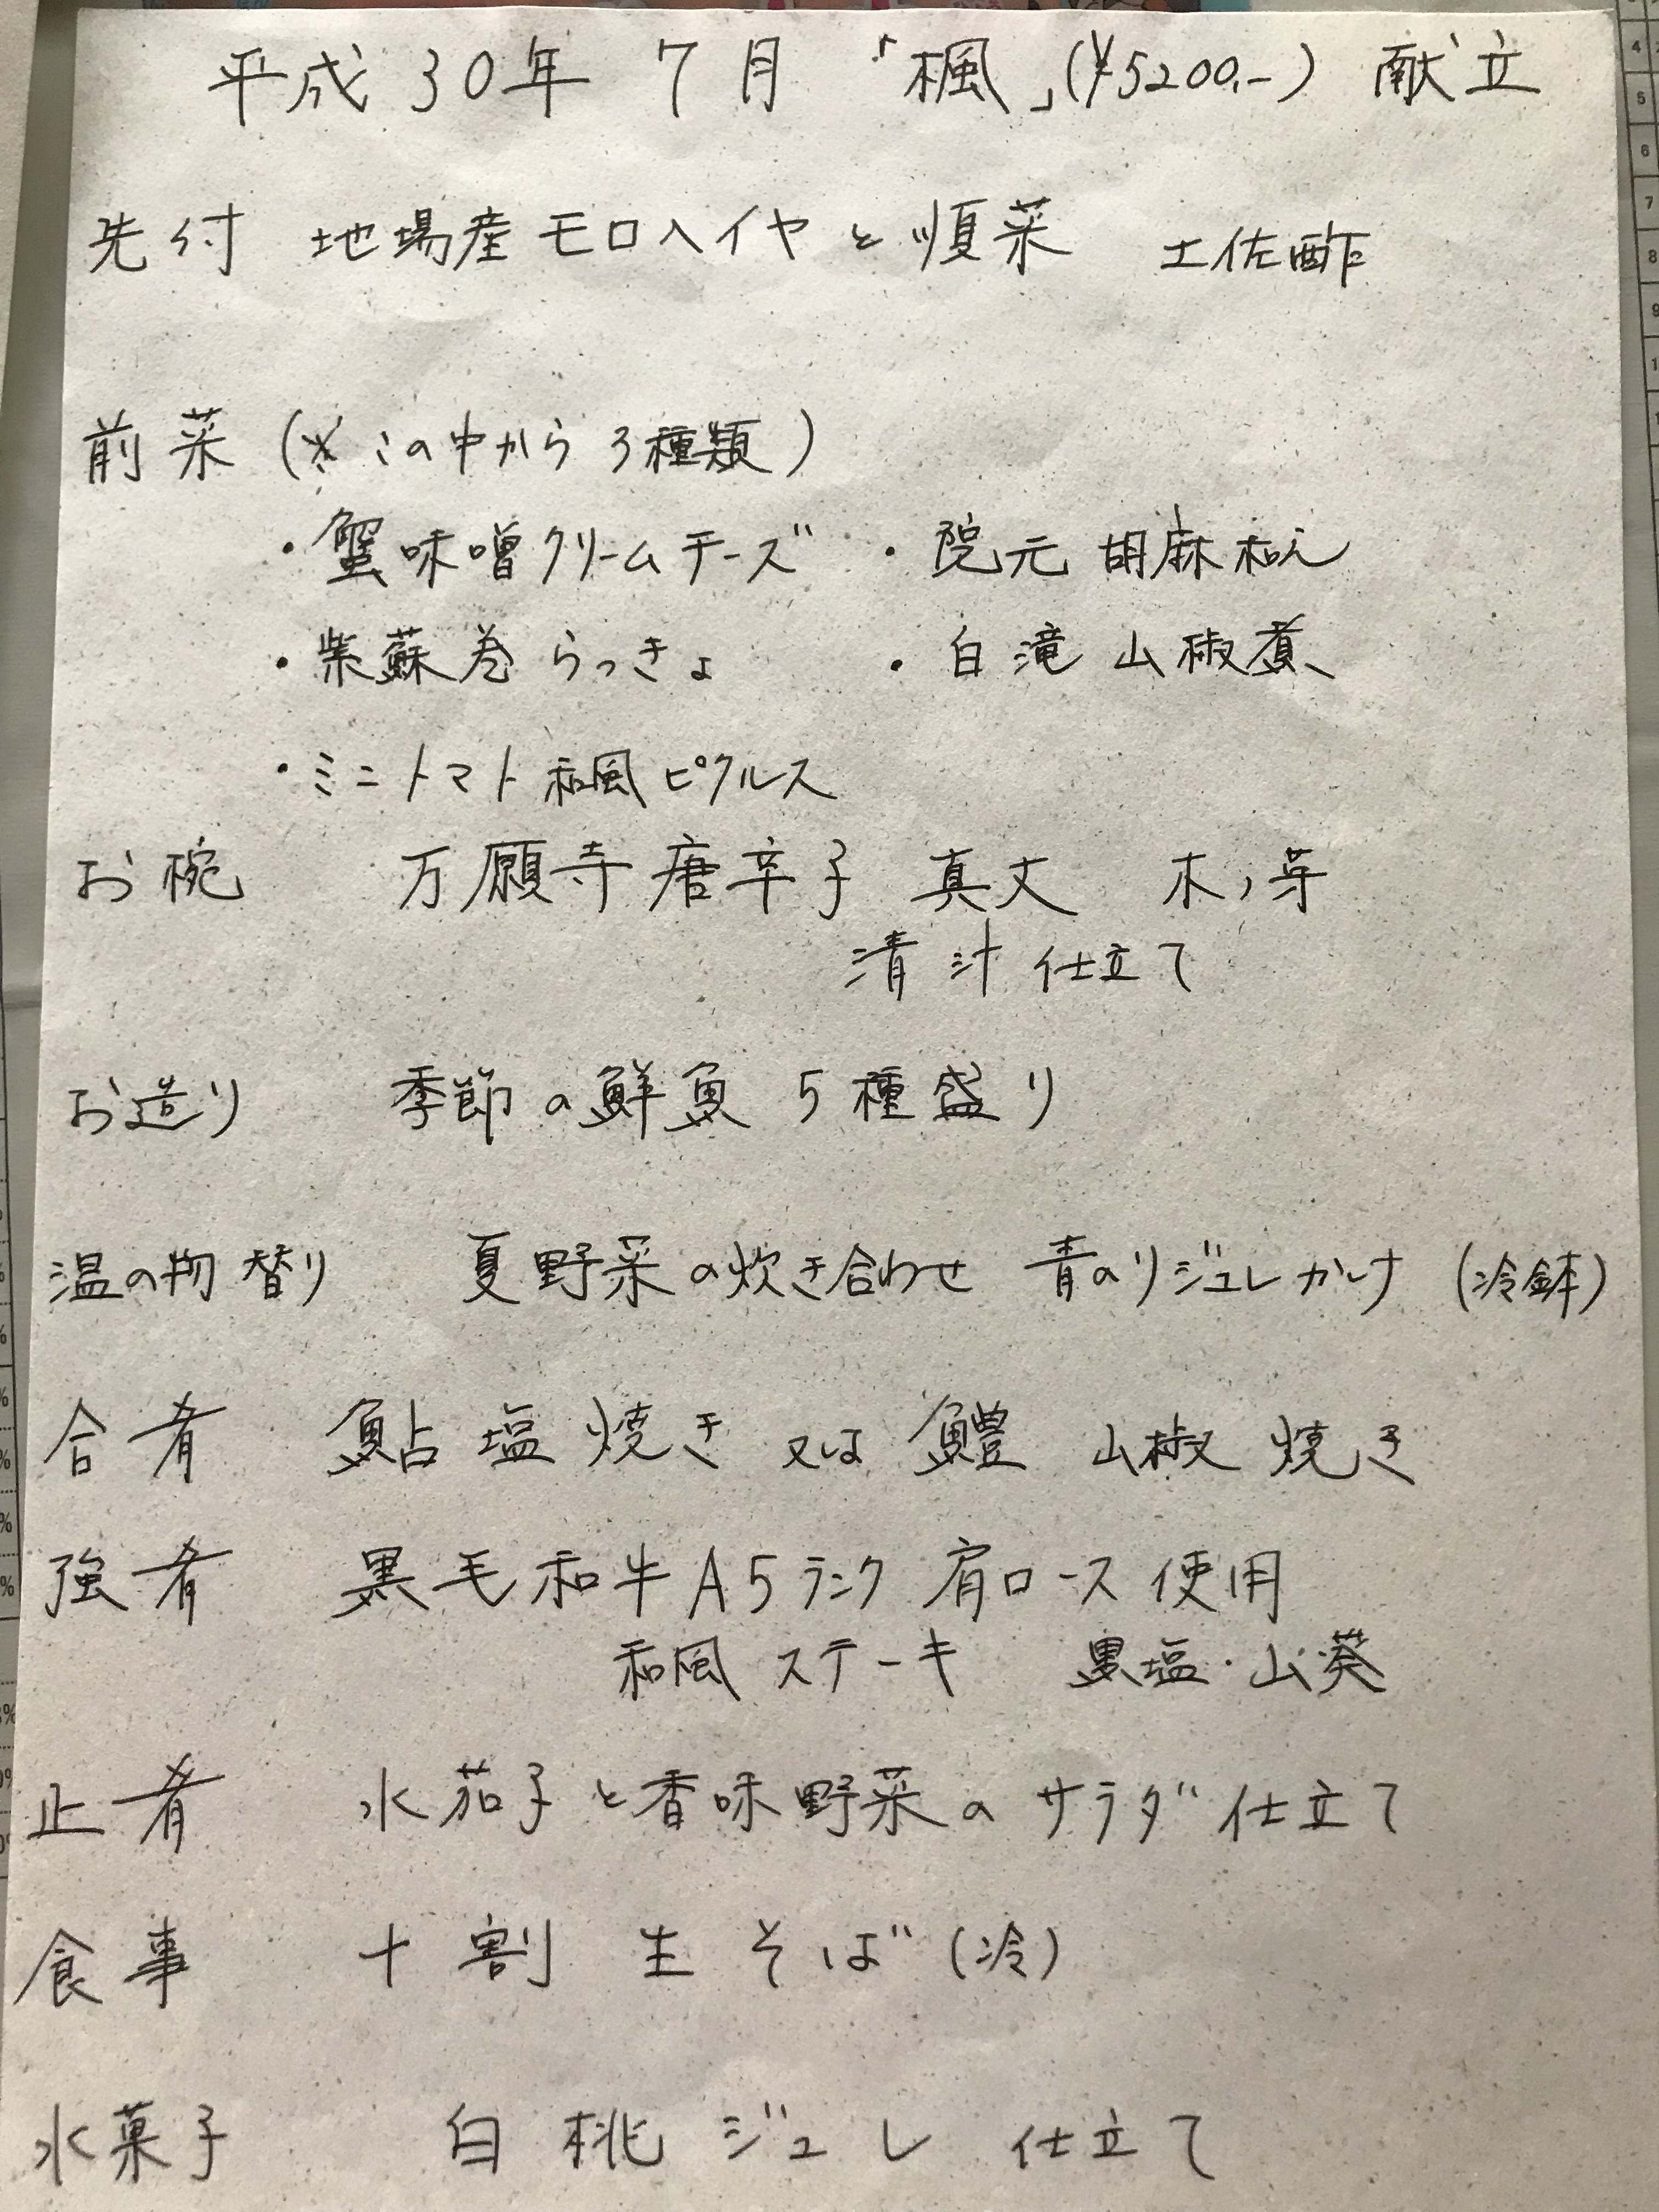 平成30年 7月 「楓」(¥5200.-) 献立
先付 地場産モロヘイヤと順菜 土佐酢
前菜 (※この中から3種類)
・蟹味噌クリームチーズ ・院元 胡麻和え
・紫蘇巻らっきょ ・白滝 山椒煮
・ミニトマト和風ピクルス
お椀 万願寺唐辛子 真丈 木ノ芽
清汁仕立て
お造り 季節の鮮魚 5種盛り
温の物替り 夏野菜の炊き合わせ 青のりジュレかけ (冷鉢)
合肴 鮎塩焼き 又は 鱧 山椒焼き
強肴 黒毛和牛A5ランク 肩ロース使用
和風ステーキ 黒塩・山葵
止肴 水茄子と香味野菜のサラダ仕立て
食事 十割 生そば (冷)
水菓子 白桃ジュレ 仕立て